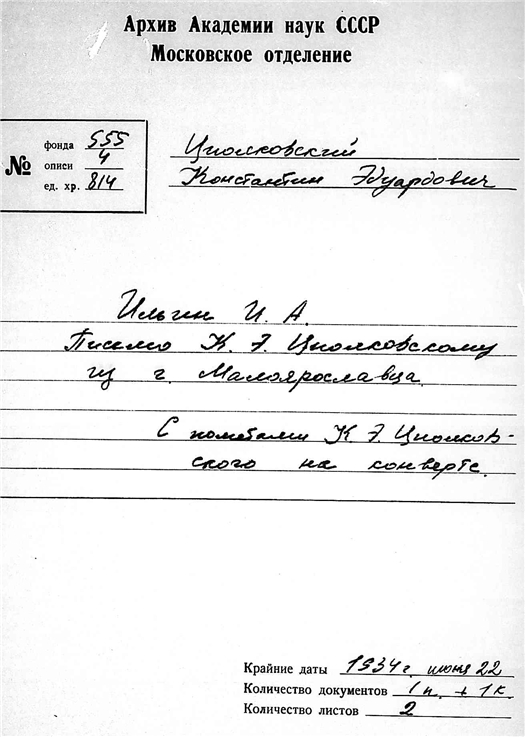 Архив Академии наук СССР
Московское отделение
№
фонда 555
описи 4
ед. хр. 814
Циолковский
Константин Эдуардович
Ильин И. А.
Письмо К. Э. Циолковскому
из г. Малоярославца.
С пометами К. Э. Циолков-
ского на конверте.
Крайние даты 1934 г. июня 22
Количество документов 1 п. + 1 к
Количество листов 2